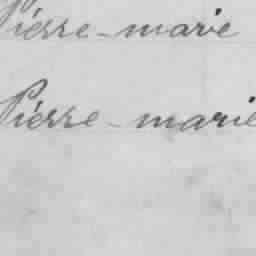 Pierre-marie
Pierre-marie